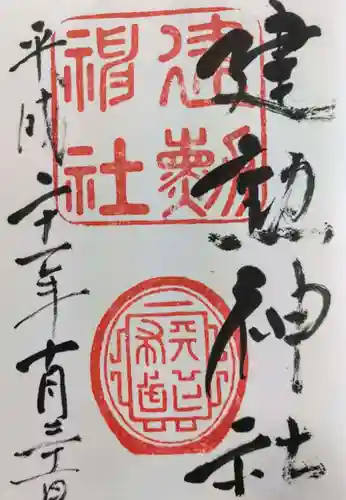 建勲神社
平成二十一年十月三十一日
建勲
神社
天下布武